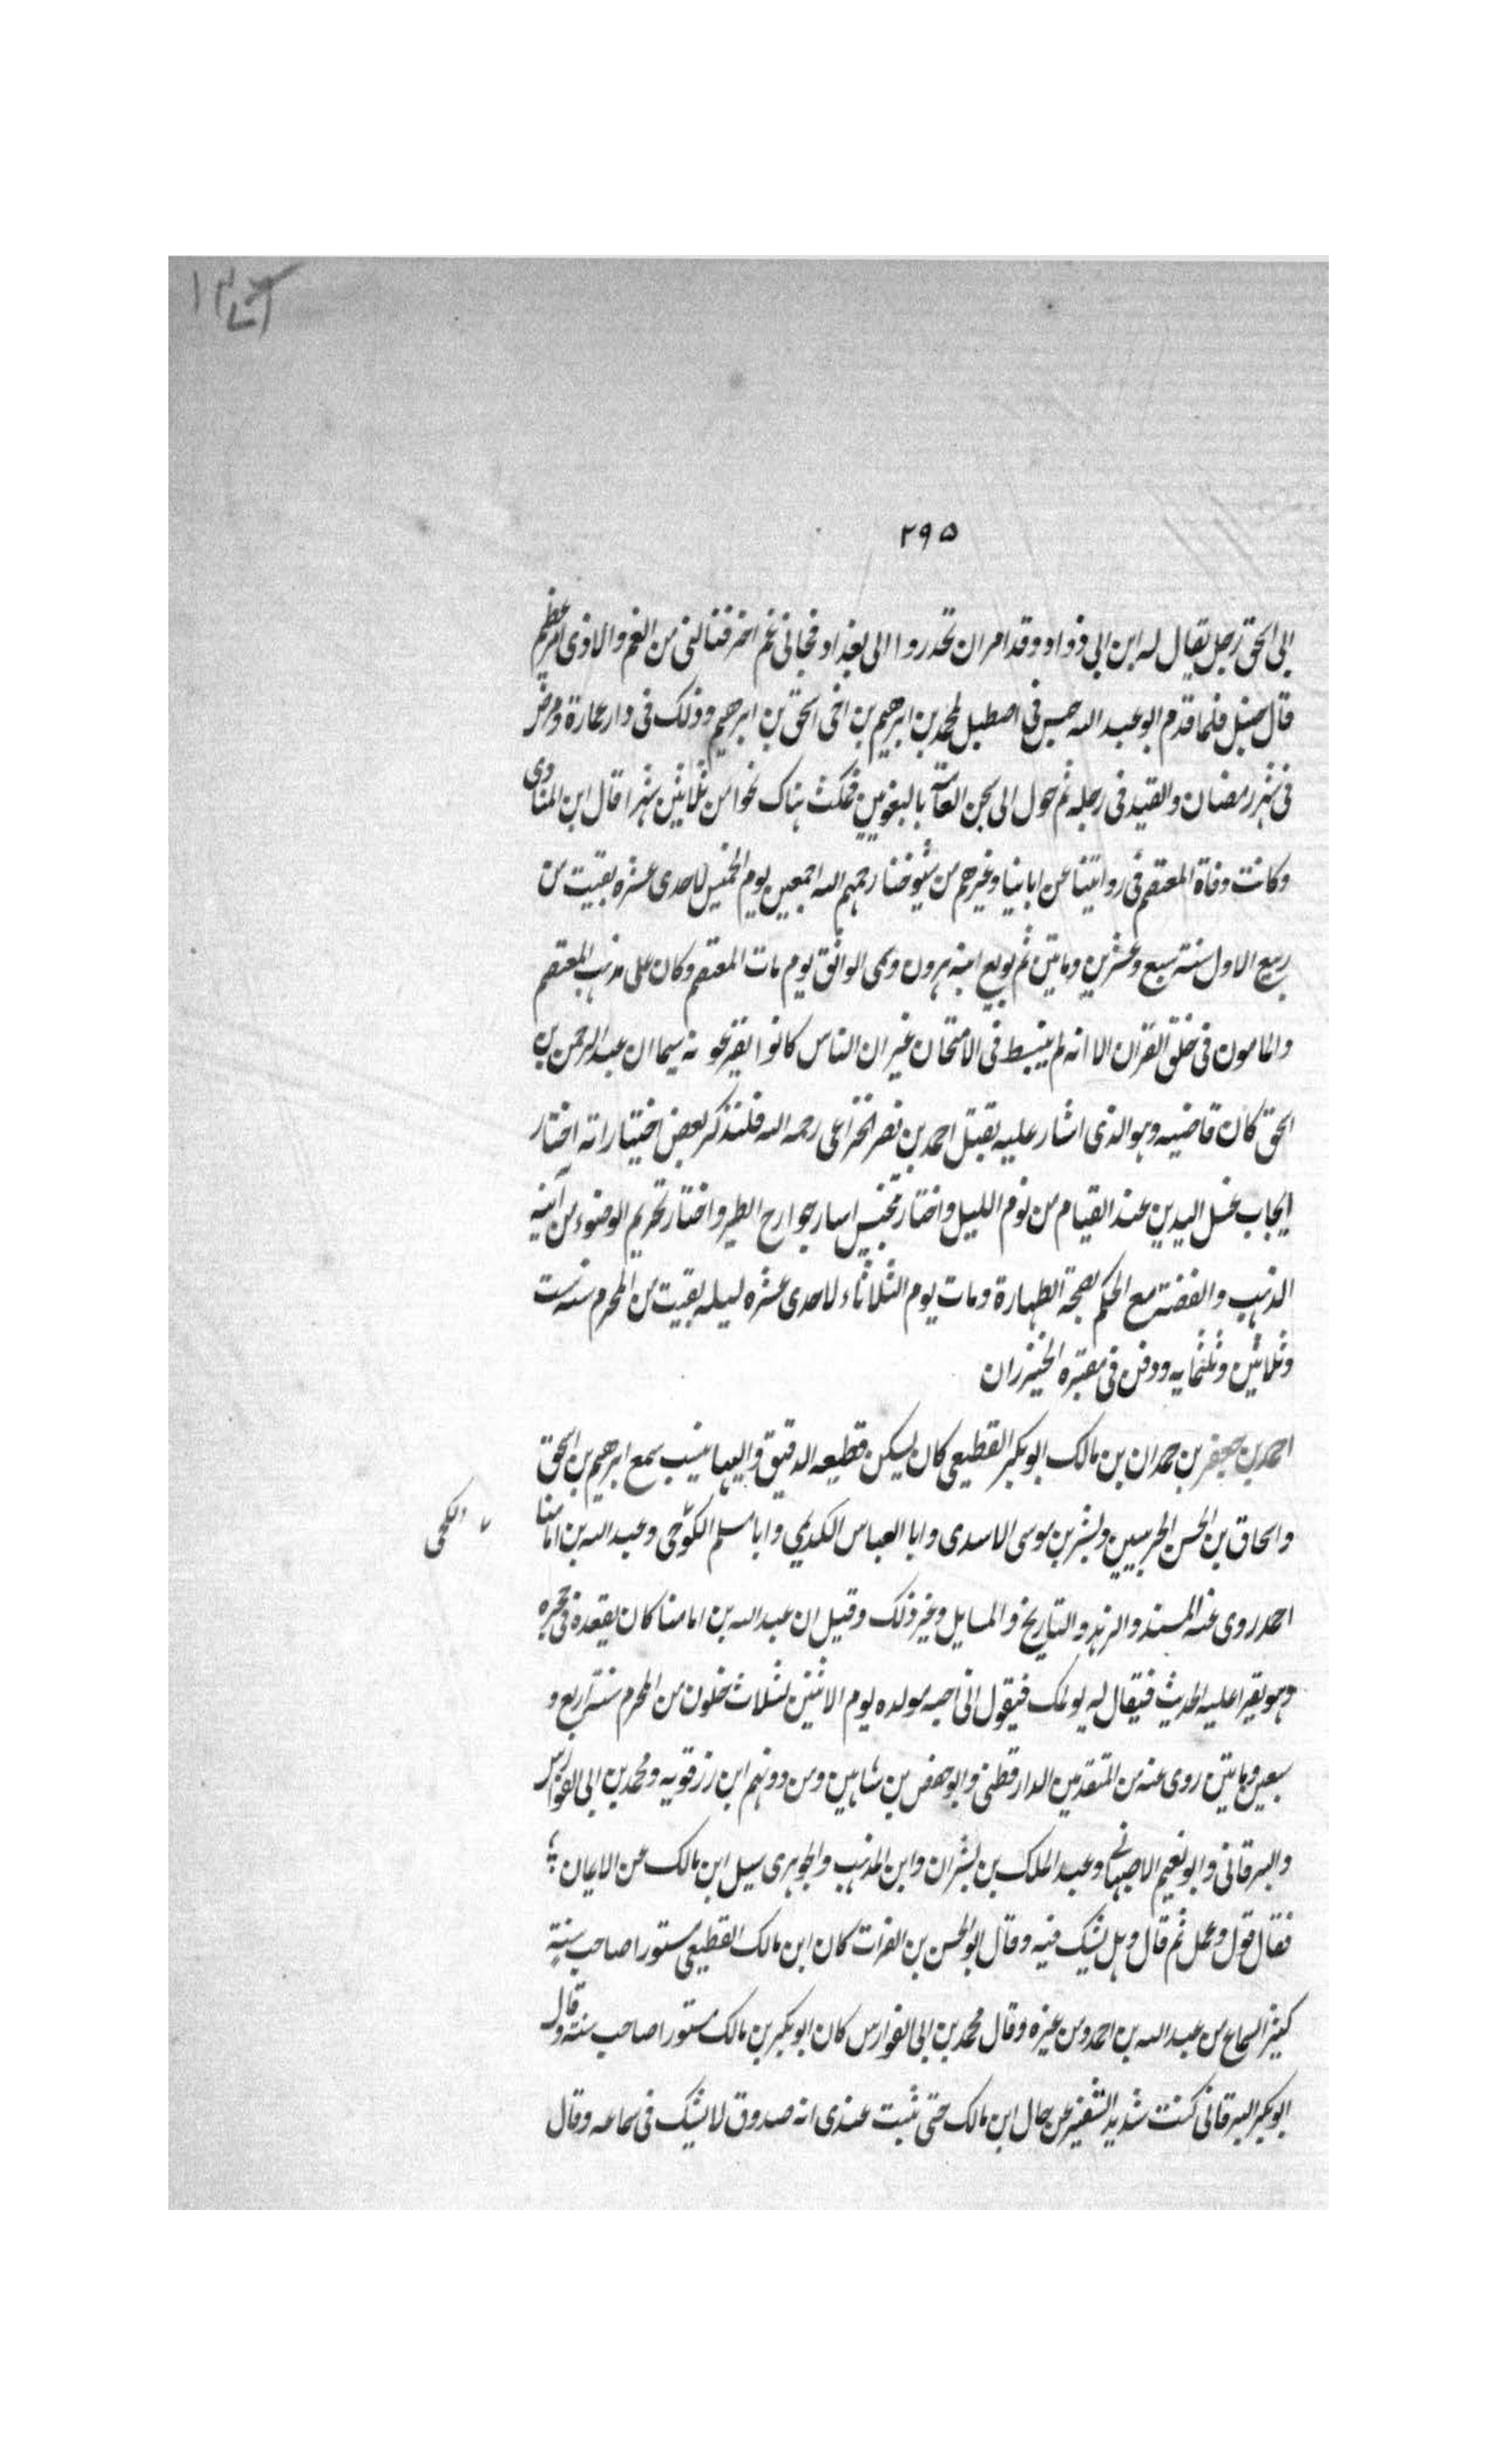 ٢٩٥
الى اسحق رجل يقال له ابن ابى دواد وقد امر ان تحدروا الى بغداد فجانى غم اخر فنالنى من الغم والاذى امر عظيم
قال حنبل فلما قدم ابو عبد الله حبس فى اصطبل لمحمد بن ابرهيم بن اخى اسحق بن ابرهيم وذلك فى دار عمارة ومرض
فى شهر رمضان والقيد فى رجله ثم حول الى سجن العامة بالبغويين فمكث هناك نحوا من ثلاثين شهرا قال ابن المنادى
وكانت وفاة المعتصم فى روايتنا عن ابائنا وغيرهم من شيوخنا رحمهم الله اجمعين يوم الخميس لاحدى عشره بقيت من
ربيع الاول سنة سبع وعشرين ومايتين ثم بويع ابنه هرون وسمى الواثق يوم مات المعتصم وكان على مذهب المعتصم
والمامون فى خلق القران الا انه لم ينبسط فى الامتحان غير ان الناس كانوا يفزعونه سيما ان عبد الرحمن بن
اسحق كان قاضيه وهو الذى اشار عليه بقتل احمد بن نصر الخزاعى رحمه الله فلنذكر بعض اختياراته اختار
ايجاب غسل اليدين عند القيام من نوم الليل واختار تنجيس اسار جوارح الطير واختار تحريم الوضوء من آنية
الذهب والفضة مع الحكم بصحة الطهارة ومات يوم الثلاثاء لاحدى عشره ليله بقيت من المحرم سنه ست
وثلاثين وثلثمايه ودفن فى مقبره الخيزران
احمد بن جعفر بن حمدان بن مالك ابو بكر القطيعى كان يسكن قطيعه الدقيق واليها ينسب سمع ابرهيم بن اسحق
واسحاق بن الحسن الحربيين وبشر بن موسى الاسدى وابا العباس الكديمى وابا مسلم الكوجى وعبد الله بن امامنا
الكجى
احمد روى عنه المسند والزهد والتاريخ والمسايل وغير ذلك وقيل ان عبد الله بن امامنا كان يقعده فى حجره
وهو يقرا عليه الحديث فيقال له يولمك فيقول انى احبه مولده يوم الاثنين لثلاث خلون من المحرم سنة اربع و
سبعين ومايتين روى عنه من المتقدمين الدارقطنى وابو حفص بن شاهين ومن دونهم ابن رزقويه ومحمد بن ابى الفوارس
والبرقانى وابو نعيم الاصبهانى وعبد الملك بن بشران وابن المذهب والجوهرى سيل ابن مالك عن الايمان
فقال قول وعمل ثم قال وهل يشك فيه وقال ابو الحسن بن الفرات كان ابن مالك القطيعى مستورا صاحب سنة
كثير السماع من عبد الله بن احمد ومن غيره وقال محمد بن ابى الفوارس كان ابو بكر بن مالك مستورا صاحب سنة وقال
ابو بكر البرقانى كنت شديد التنفير عن حال ابن مالك حتى ثبت عندى انه صدوق لا يشك فى سماعه وقال